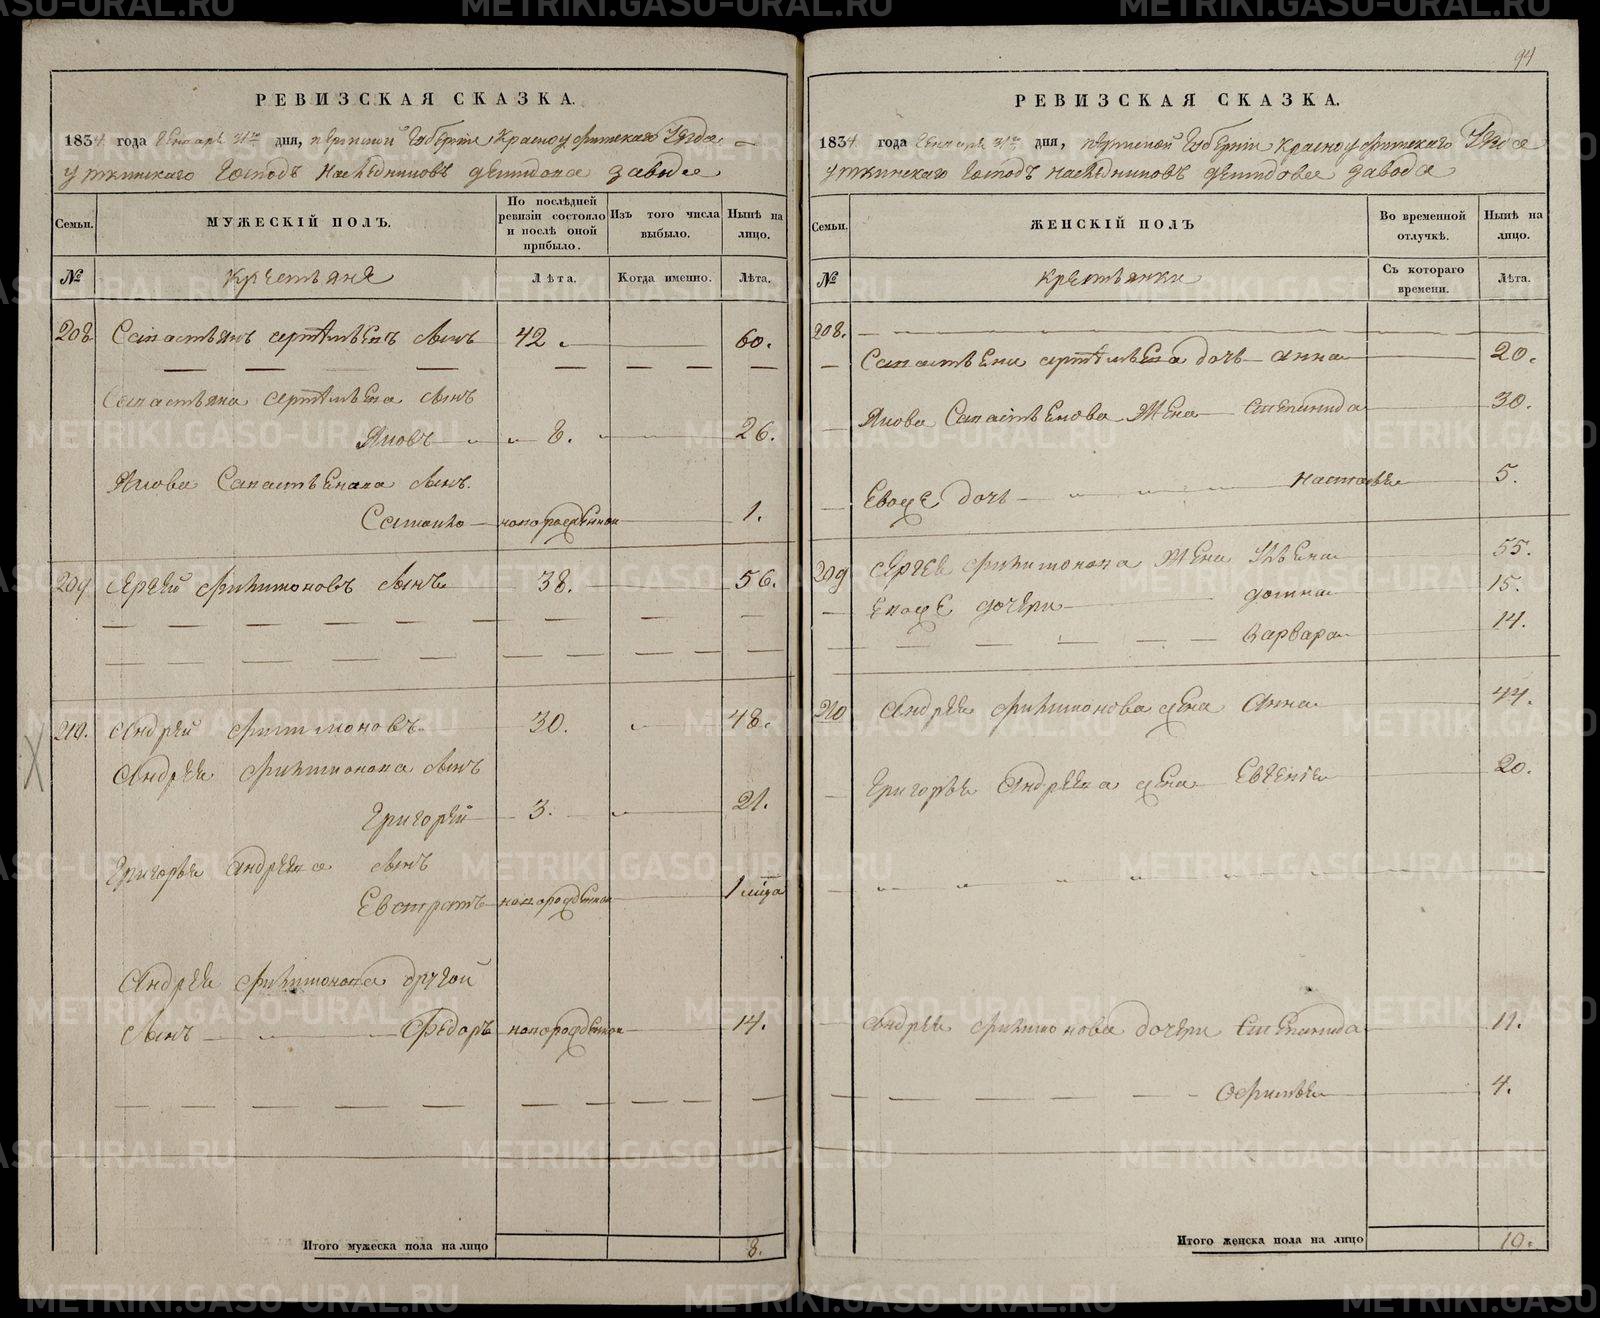 РЕВИЗСКАЯ СКАЗКА.
1834 года Генваря 31го дня, пермской Губерніи Красноуфимскаго Уезда
Уткинскаго Господъ Наследниковъ демидова завода
Семьи.
МУЖЕСКІЙ ПОЛЪ.
По послѣдней ревизіи состояло и послѣ оной прибыло.
Изъ того числа выбыло.
Нынѣ на лицо.
№
крестьяне
Лѣта.
Когда именно.
Лѣта.
208 сынъ 42. 60.
сынъ
Яковъ 8. 26.
Якова сынъ
новорожденной 1.
209 Сергей Филимоновъ сынъ 38. 56.
210. Андрей Филимоновъ 30. 48.
Андрея Филимонова сынъ
Григорей 3. 21.
Григорья Андреева сынъ
Евстратъ новорожденной 1
Андрея Филимонова другой
сынъ Федоръ новорожденной 14.
Итого мужеска пола на лицо 8.
94
РЕВИЗСКАЯ СКАЗКА.
1834 года Генваря 31го дня, пермской Губерніи Красноуфимскаго Уезда
Уткинскаго Господъ наследниковъ демидова завода
Семьи.
ЖЕНСКІЙ ПОЛЪ
Во временной отлучкѣ.
Нынѣ на лицо.
№
крестьянки
Съ котораго времени.
Лѣта.
208.
дочь анна 20.
Якова жена степанида 30.
Евоже дочь настасья 5.
209 Сергея Филимонова жена Ульяна 55.
Евоже дочери домна 15.
варвара 14.
210 Андрея Филимонова жена Анна 44.
Григорья Андреева жена Евгенія 20.
Андрея Филимонова дочери степанида 11.
4.
Итого женска пола на лицо 10.
METRIKI.GASO-URAL.RU